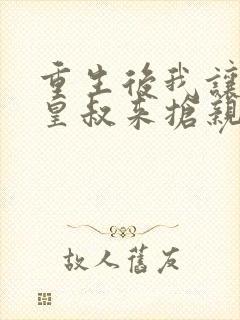 重生後我讓
皇叔來搶親
故人舊友